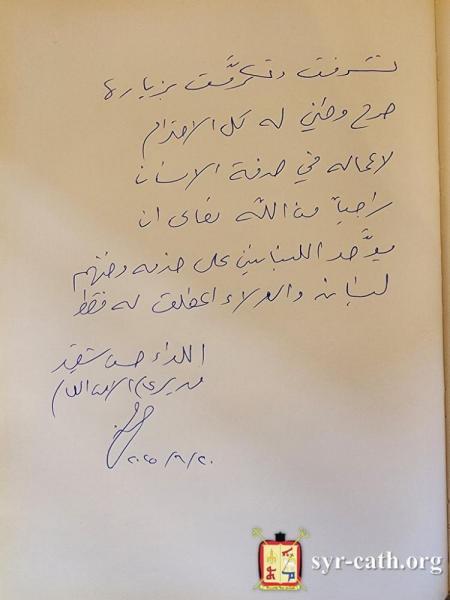 تشرفت وتكرّمت بزيارة
صرح وطني له كل الاحترام
لاعماله في خدمة الانسان
راجياً من الله تعالى ان
يوّحد اللبنانيين على خدمة وطنهم
لبنان والولاء المطلق له فقط
اللواء حسن شقير
مدير عام الامن العام
٢٠٢٥/٩/٢٠
syr-cath.org